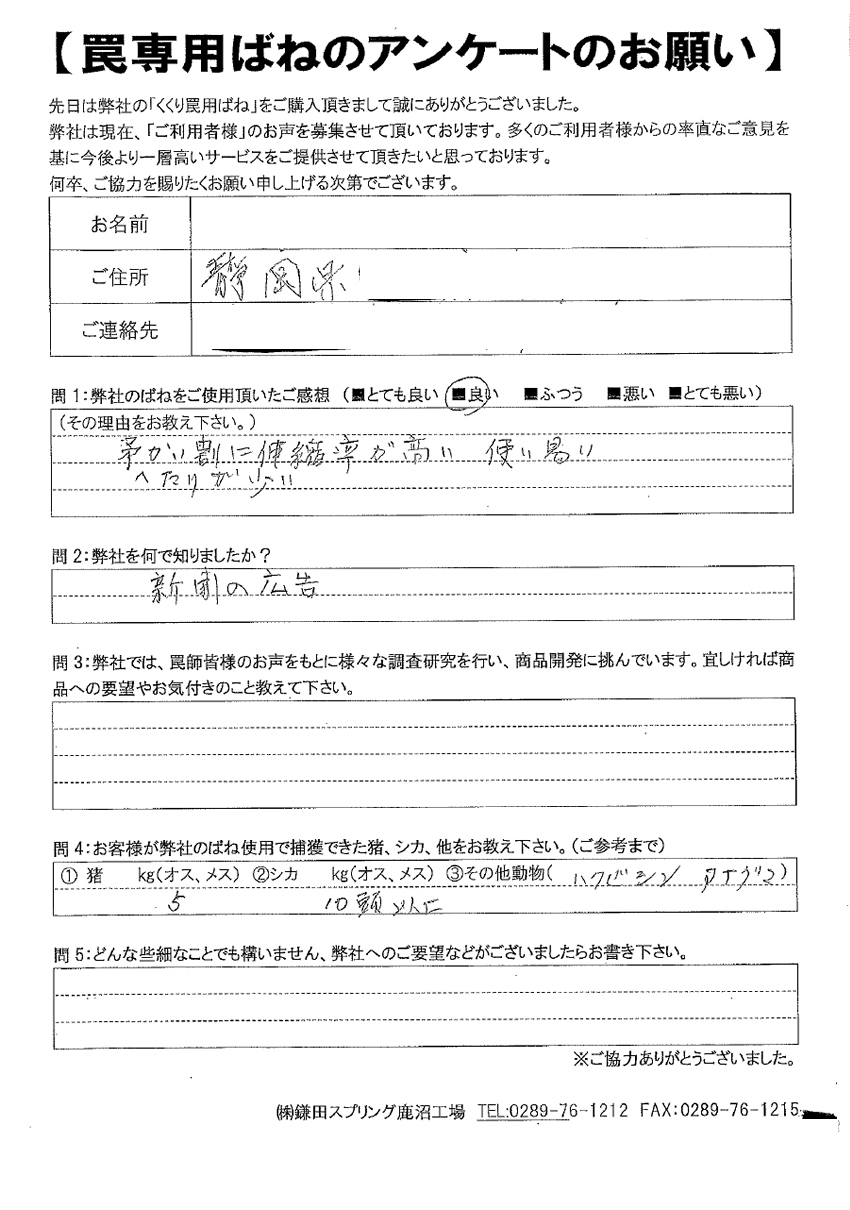 【罠専用ばねのアンケートのお願い】
先日は弊社の「くくり罠用ばね」をご購入頂きまして誠にありがとうございました。
弊社は現在、「ご利用者様」のお声を募集させて頂いております。多くのご利用者様からの率直なご意見を
基に今後より一層高いサービスをご提供させて頂きたいと思っております。
何卒、ご協力を賜りたくお願い申し上げる次第でございます。
お名前
ご住所 静岡県
ご連絡先
問1:弊社のばねをご使用頂いたご感想 (■とても良い ■良い ■ふつう ■悪い ■とても悪い)
(その理由をお教え下さい。)
割に伸縮率が高い 使い易い
へたりが少い
問2:弊社を何で知りましたか?
新聞の広告
問3:弊社では、罠師皆様のお声をもとに様々な調査研究を行い、商品開発に挑んでいます。宜しければ商
品への要望やお気付きのこと教えて下さい。
問4:お客様が弊社のばね使用で捕獲できた猪、シカ、他をお教え下さい。(ご参考まで)
① 猪 kg(オス、メス) ②シカ kg(オス、メス) ③その他動物( ハクビシン アナグマ )
5 10頭以上
問5:どんな些細なことでも構いません、弊社へのご要望などがございましたらお書き下さい。
※ご協力ありがとうございました。
㈱鎌田スプリング鹿沼工場 TEL:0289-76-1212 FAX:0289-76-1215